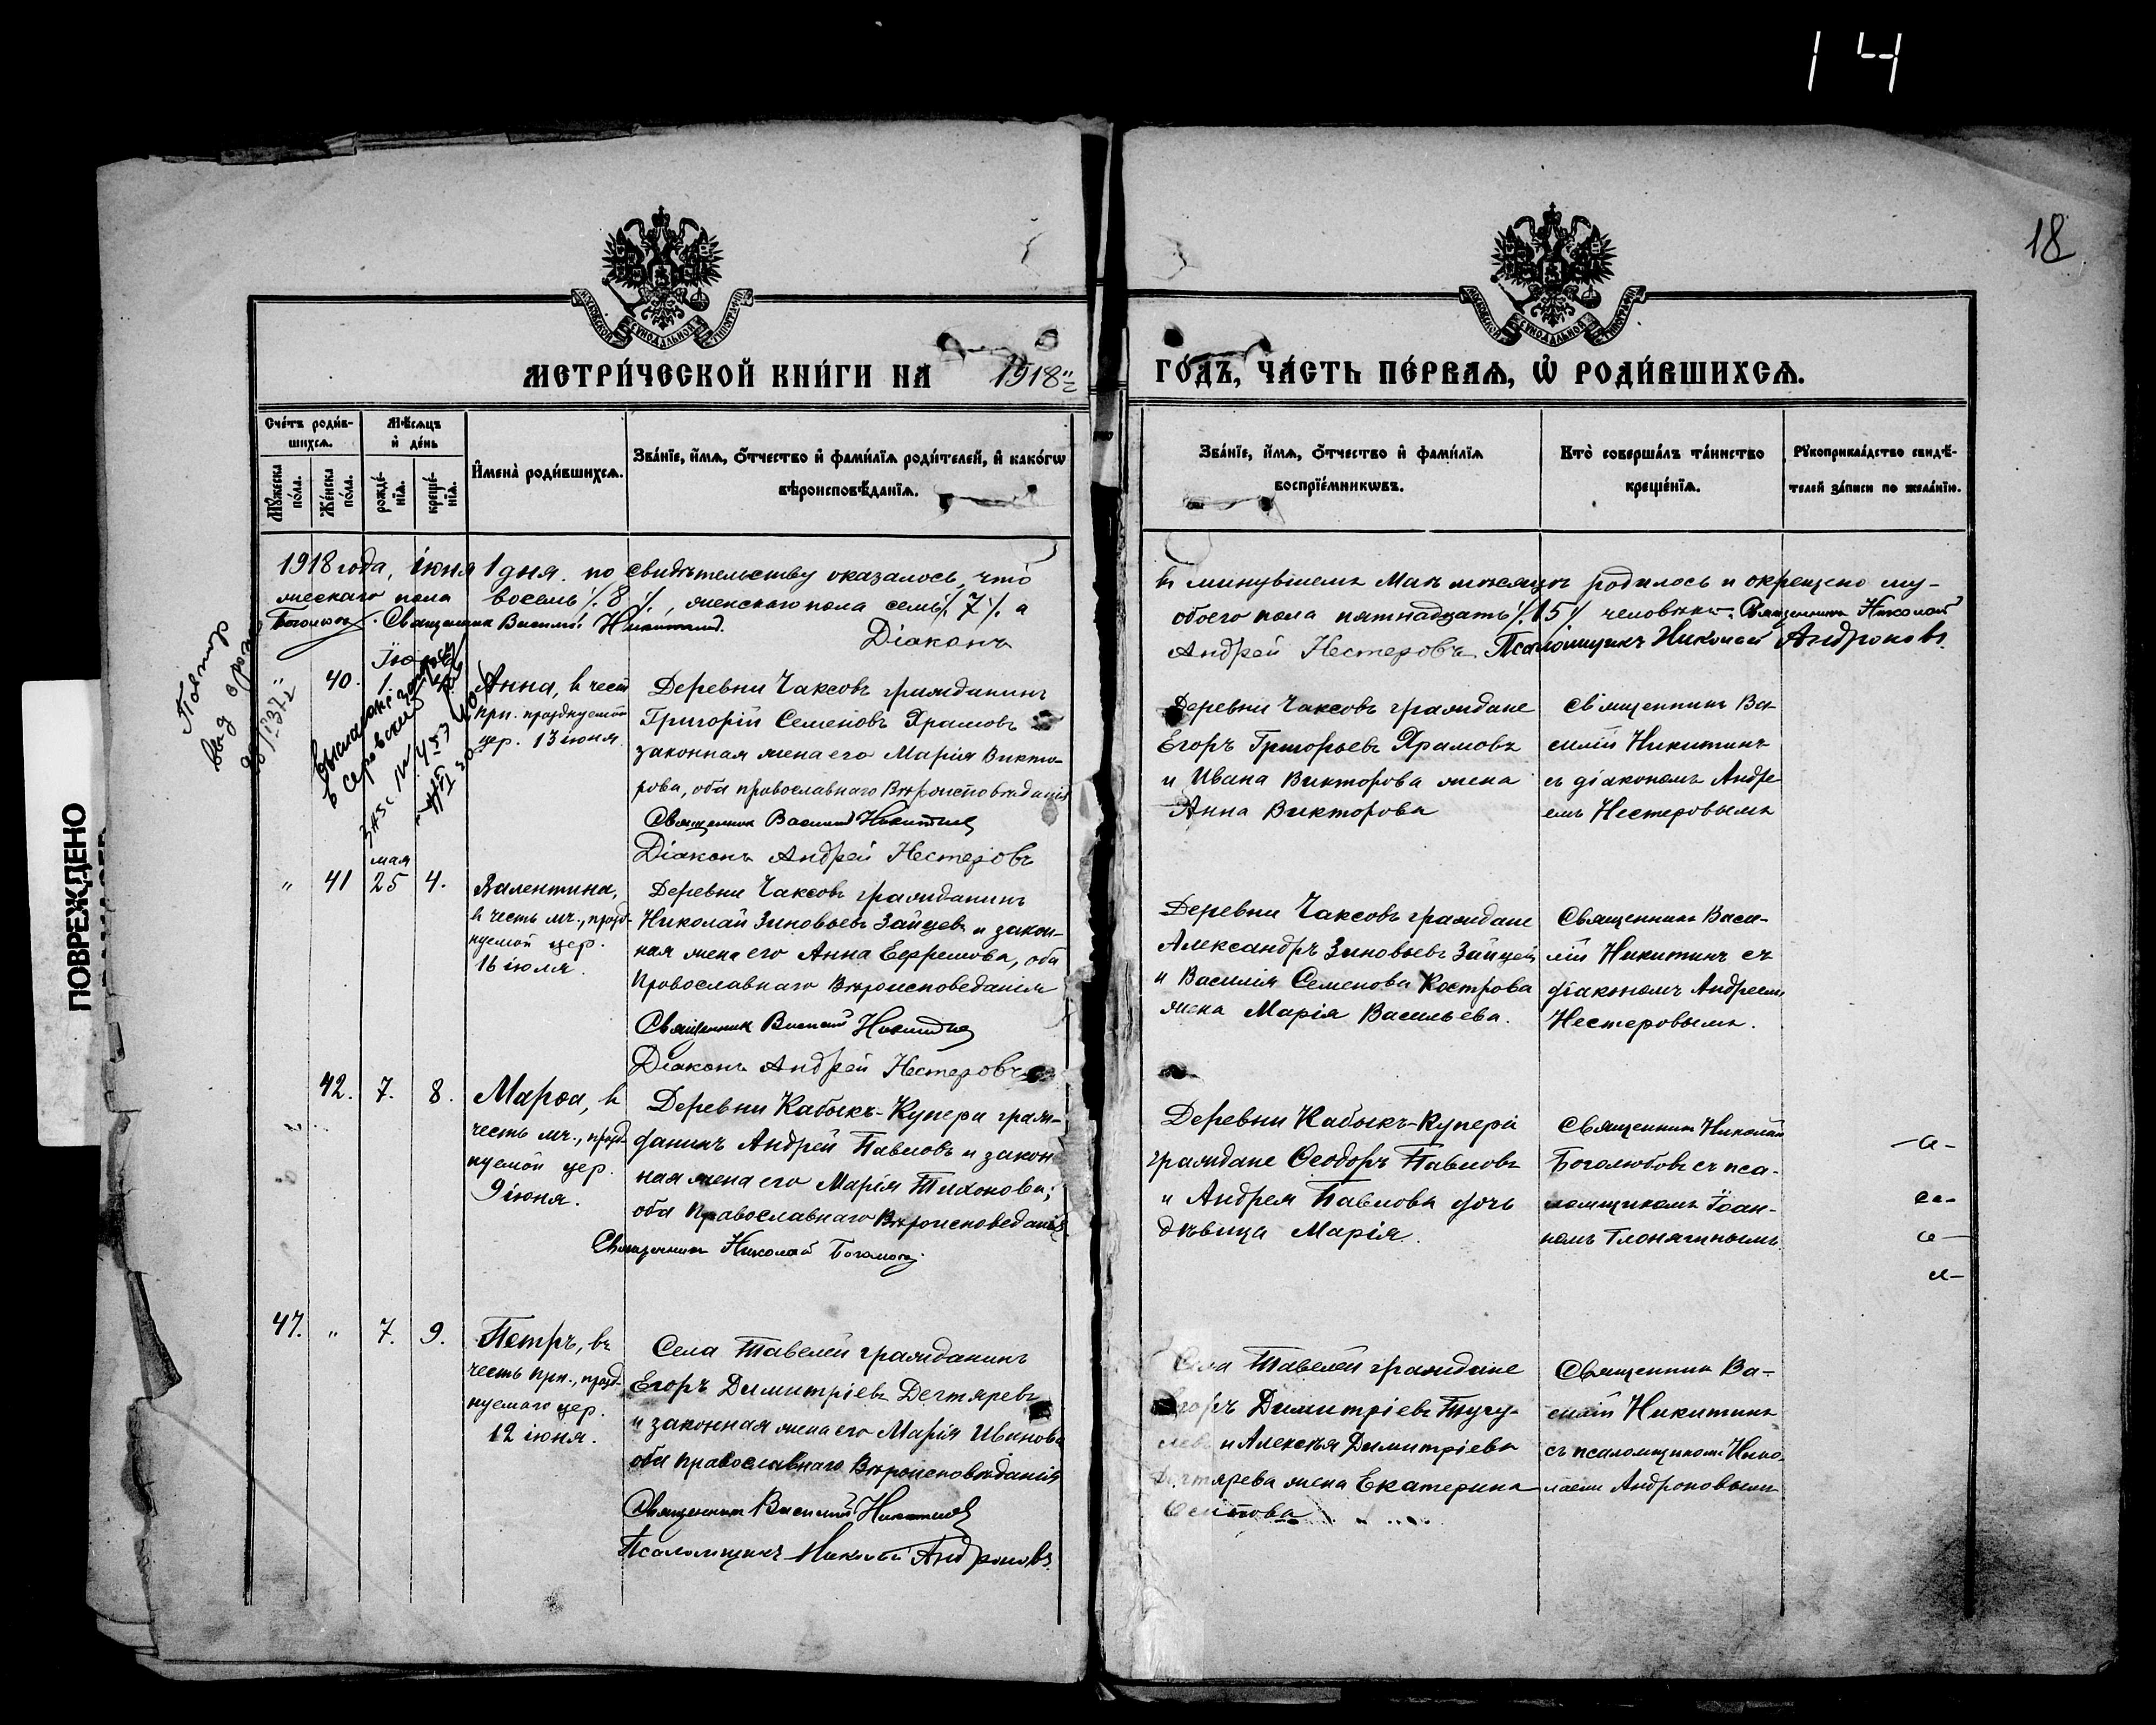 14
18
МОСКОВСКОЙ СѴНОДАЛЬНОЙ ТИПОГРАФІИ
МОСКОВСКОЙ СѴНОДАЛЬНОЙ ТИПОГРАФІИ
МЕТРИ́ЧЕСКОЙ КНИ́ГИ НА 1918 ГО́ДЪ, ЧА́СТЬ ПЕ́РВАѦ, Ѡ҆ РОДИ́ВШИХСѦ.
Сче́тъ роди́в-
шихсѧ.
Мꙋ́жеска по́ла.
Же́нска по́ла.
Мѣ́сѧцъ
и҆ де́нь
рожде́-
нїѧ.
креще́-
нїѧ.
И҆мена̀ роди́вшихсѧ.
Зва́нїе, и҆́мѧ, ѻ҆́тчество и҆ фами́лїѧ роди́телей, и҆ како́гѡ
вѣроисповѣ́данїѧ.
Зва́нїе, и҆́мѧ, ѻ҆́тчество и҆ фами́лїѧ
воспрїе́мникѡвъ.
Кто̀ соверша́лъ та́инство
креще́нїѧ.
Рꙋкоприкла́дство свидѣ́-
телей за́писи по жела́нїю.
1918 года, іюня 1 дня. по свидѣтельству оказалось, что
въ минувшемъ Маѣ мѣсяцѣ родилось и окрещено му-
жескаго пола восемь /.8 /., женскаго пола семь /.7/. а
обоего пола пятнадцать /.15/ человѣкъ. Священникъ Николай
Боголюбовъ. Священник Василій Никитинъ. Діаконъ
Андрей Нестеровъ. Псаломщикъ Николай Андроновъ.
Повтор
выд
" 40. Іюня
1
Анна, въ честь
прп. празднуемой
цер. 13 іюня.
Деревни Чаксовъ гражданинъ
Григорій Семеновъ Храмовъ
законная жена его Марія Викто-
рова, оба православнаго Вѣроисповѣданія
Священник Василий Никитин
Діаконъ Андрей Нестеровъ
Деревни Чаксовъ граждане
Егоръ Григорьевъ Храмовъ
и Ивана Викторова жена
Анна Викторова
Священникъ Ва-
силій Никитинъ
съ діакономъ Андре
емъ Нестеровымъ
" 41 мая
25 4.
Валентина,
въ честь мч., празд-
нуемой цер.
16 іюля.
Деревни Чаксовъ гражданинъ
Николай Зиновьевъ Зайцевъ и закон-
ная жена его Анна Ефремова, оба
Православнаго Вѣроисповеданія
Священник Василий Никитин
Діаконъ Андрей Нестеровъ
Деревни Чаксовъ граждане
Александръ Зиновьевъ Зайцевъ
и Василія Семенова Кострова
жена Марія Васильева.
Священникъ Васи-
лій Никитинъ съ
діакономъ Андреемъ
Нестеровымъ.
42. 7. 8.
Марѳа, въ
честь мч., празд-
нуемой цер.
9 іюня.
Деревни Кабыкъ-Купера граж-
данинъ Андрей Павловъ и закон
ная жена его Марія Тихонова;
оба Православнаго Вѣроисповеданія.
Священникъ Николай Боголюбовъ
Деревни Кабыкъ-Купера
граждане Ѳеодоръ Павловъ
и Андрея Павлова дочь
дѣвица Марія.
Священникъ Николай
Боголюбовъ съ пса-
ломщикомъ Іоан-
номъ
47. " 7. 9.
Петръ, въ
честь прп., празд-
нуемаго цер.
12 іюня.
Села Тавелей гражданинъ
Егоръ Димитріевъ Дегтяревъ
и законная жена его Марія Иванова
оба православнаго Вѣроисповѣданія
Священникъ Василий Никитин
Псаломщикъ Николай Андроновъ.
Села Тавелей граждане
Егоръ Димитріевъ
и Алексѣя Димитріева
Дегтярева жена Екатерина
Осипова
Священник Ва-
силій Никитинъ
съ псаломщикомъ Нико-
лаемъ Андроновымъ
ПОВРЕЖДЕНО